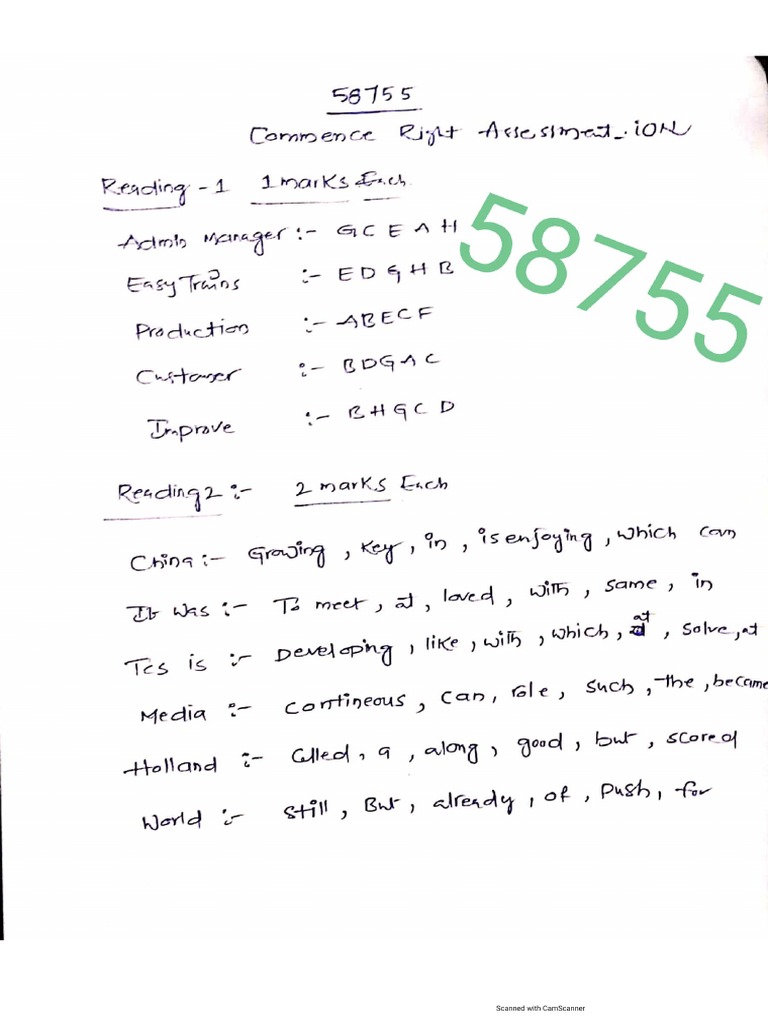 58755
Commence Right Assessment - iON
Reading - 1 1 marks Each
Admin Manager :- G C E A H
58755
Easy Trains :- E D G H B
Production :- A B E C F
Customer :- B D G A C
Improve :- B H G C D
Reading 2 :- 2 marks Each
China :- Growing , Key , in , is enjoying , which can
It was :- To meet , at , loved , with , same , in
Tcs is :- Developing , like , with , which , at , solve , at
Media :- Contineous , can , role , such , the , became
Holland :- Called , a , along , good , but , scored
World :- still , But , already , of , Push , for
Scanned with CamScanner